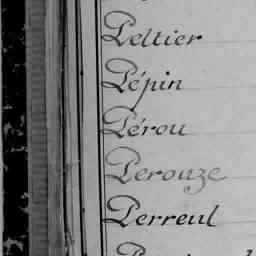 Peltier
Pépin
Pérou
Perouze
Perreul